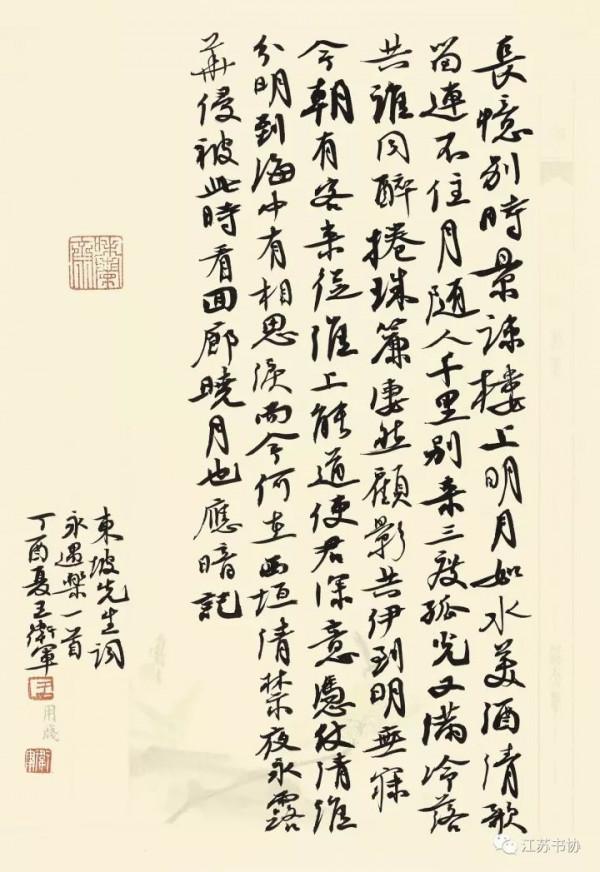 長憶別時景疎樓上明月如水美酒清歌
留連不住月随人千里別来三度孤光又滿冷落
共誰同醉捲珠簾淒然顧影共伊到明無寐
今朝有客来從濉上能道使君深意憑仗清淮
分明到海中有相思淚而今何在西垣清禁夜永露
華侵被此時看回廊曉月也應暗記
東坡先生詞
永遇樂一首
丁酉夏王衛軍
王
用箋
江苏书协